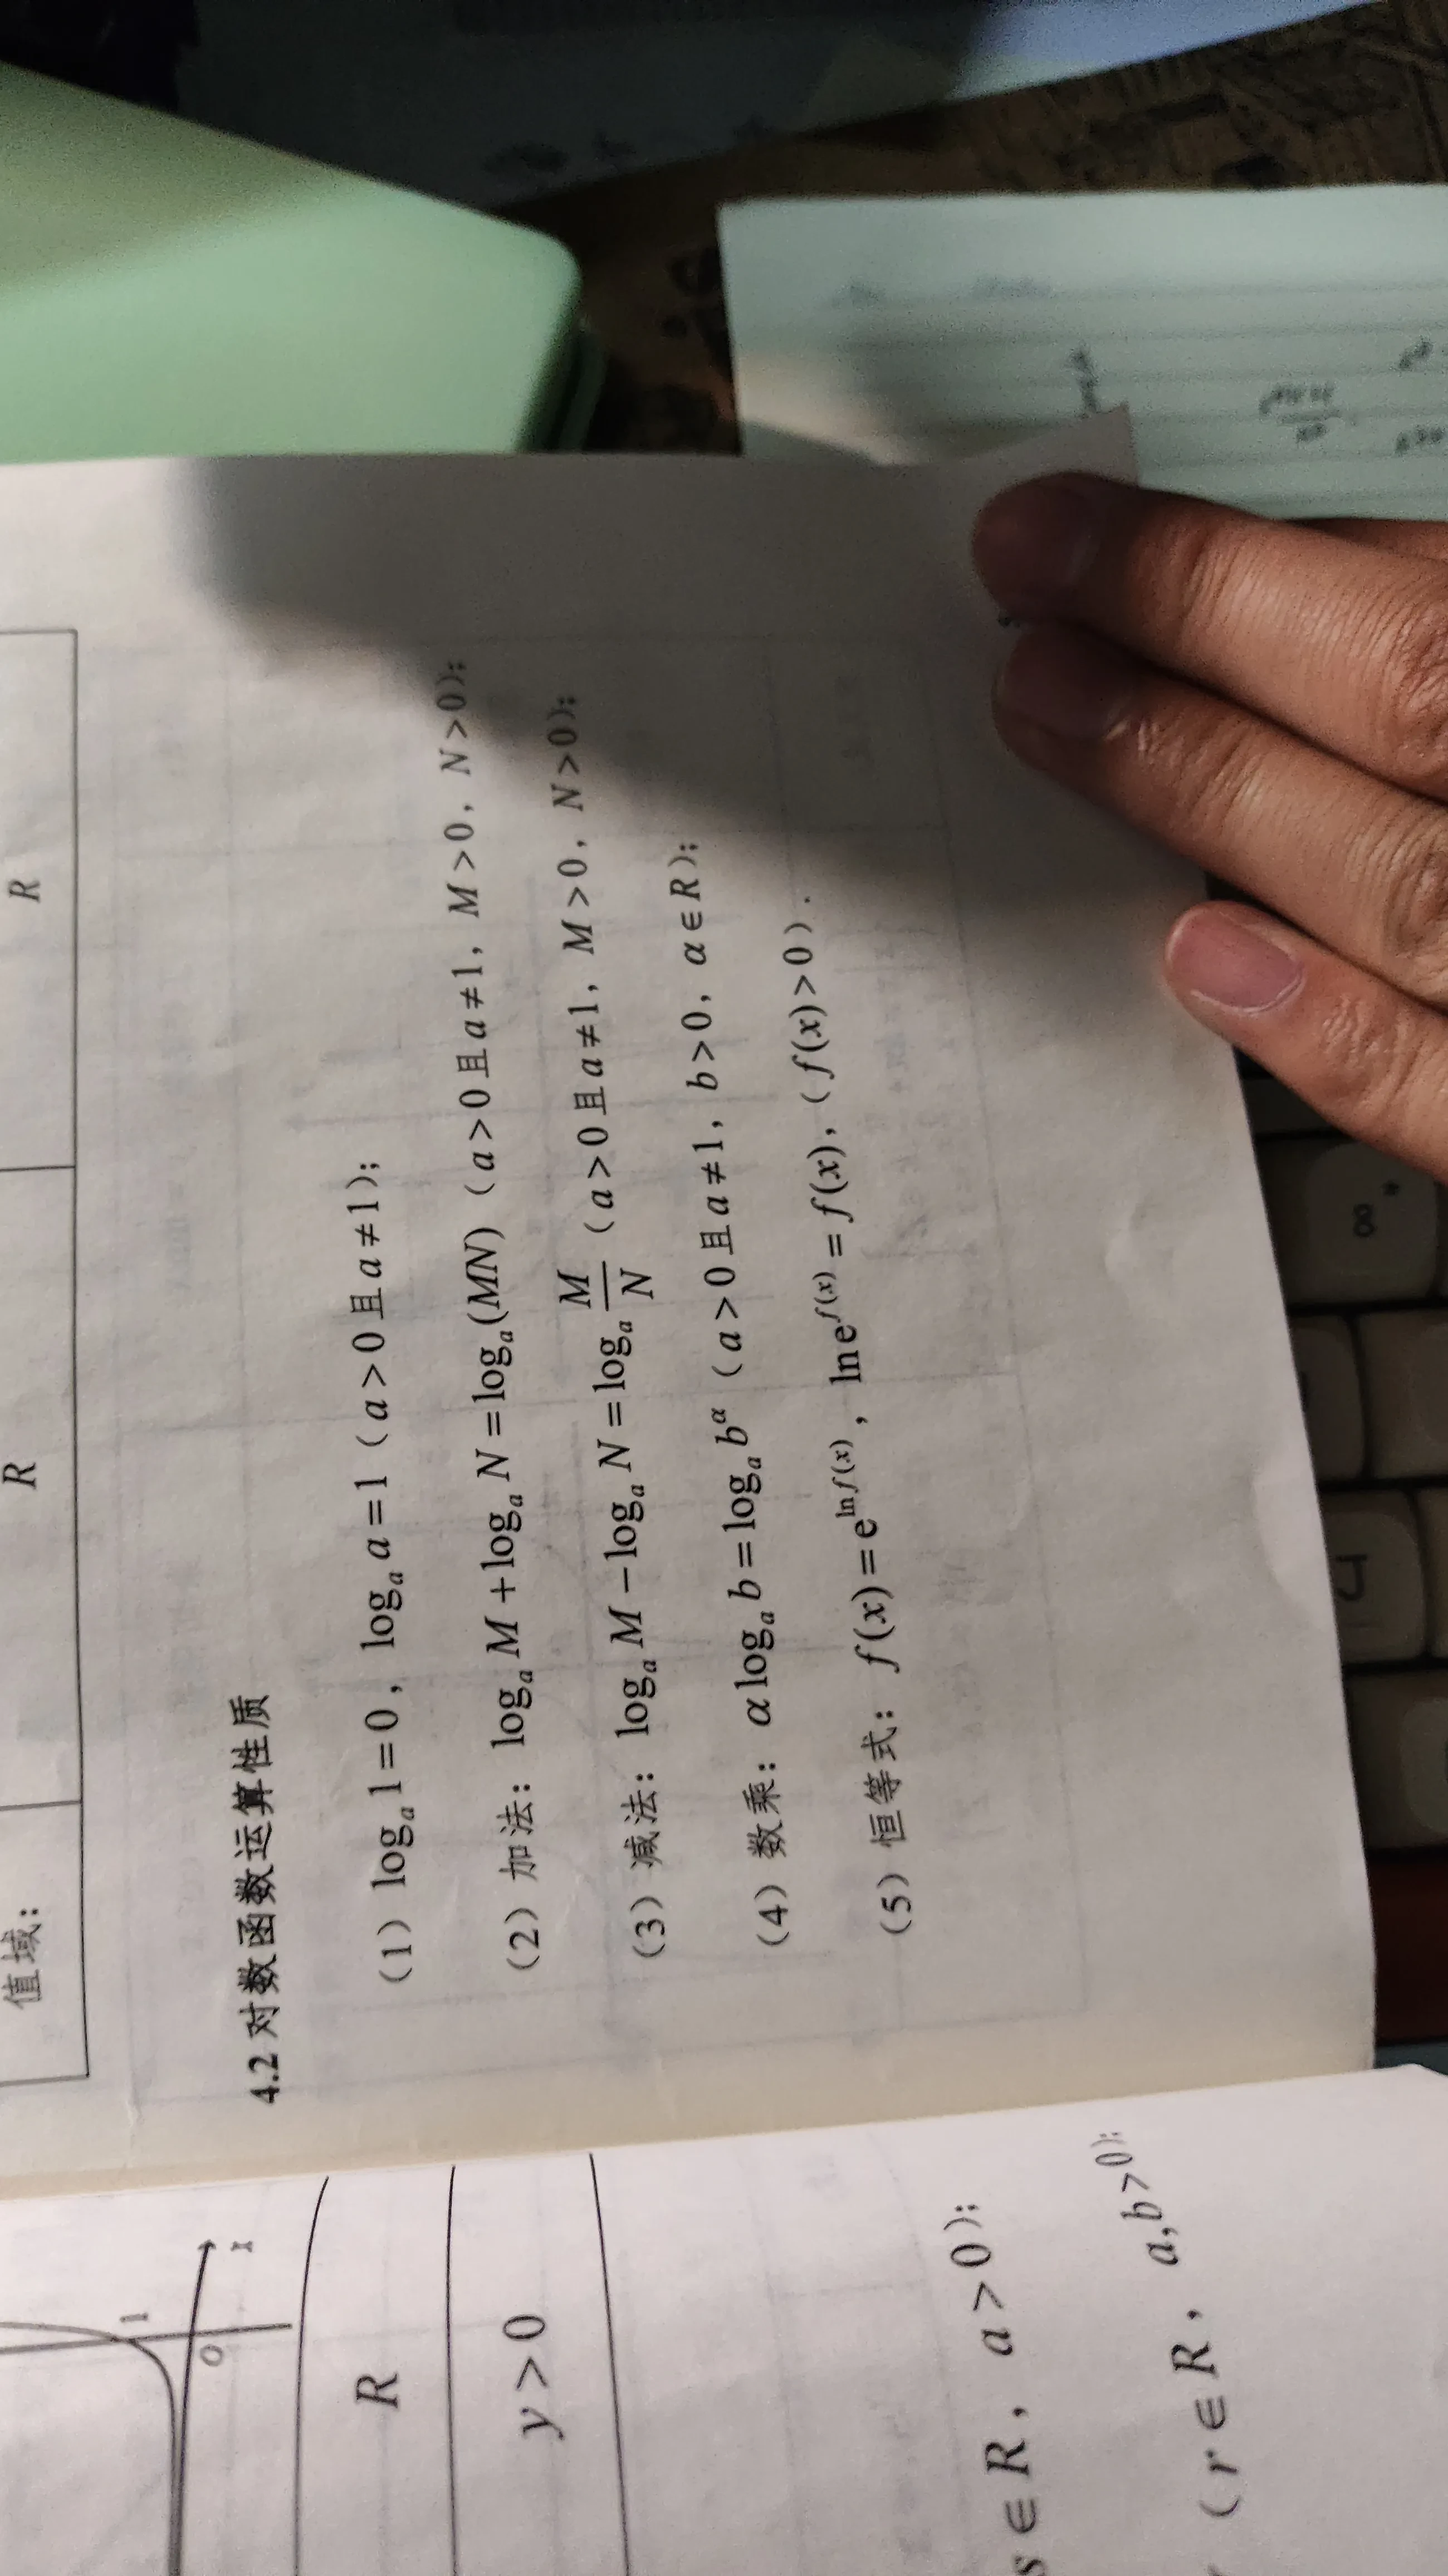 值域:
R
R
4.2 对数函数运算性质
(1) logₐ1=0, logₐa=1 (a>0且a≠1);
(2) 加法: logₐM+logₐN=logₐ(MN) (a>0且a≠1, M>0, N>0);
(3) 减法: logₐM−logₐN=logₐ M/N (a>0且a≠1, M>0, N>0);
(4) 数乘: αlogₐb=logₐb^α (a>0且a≠1, b>0, α∈R);
(5) 恒等式: f(x)=e^{ln f(x)}, ln e^{f(x)}=f(x), (f(x)>0).
1
O
x
R
y>0
s∈R, a>0);
(r∈R, a,b>0);
8
*